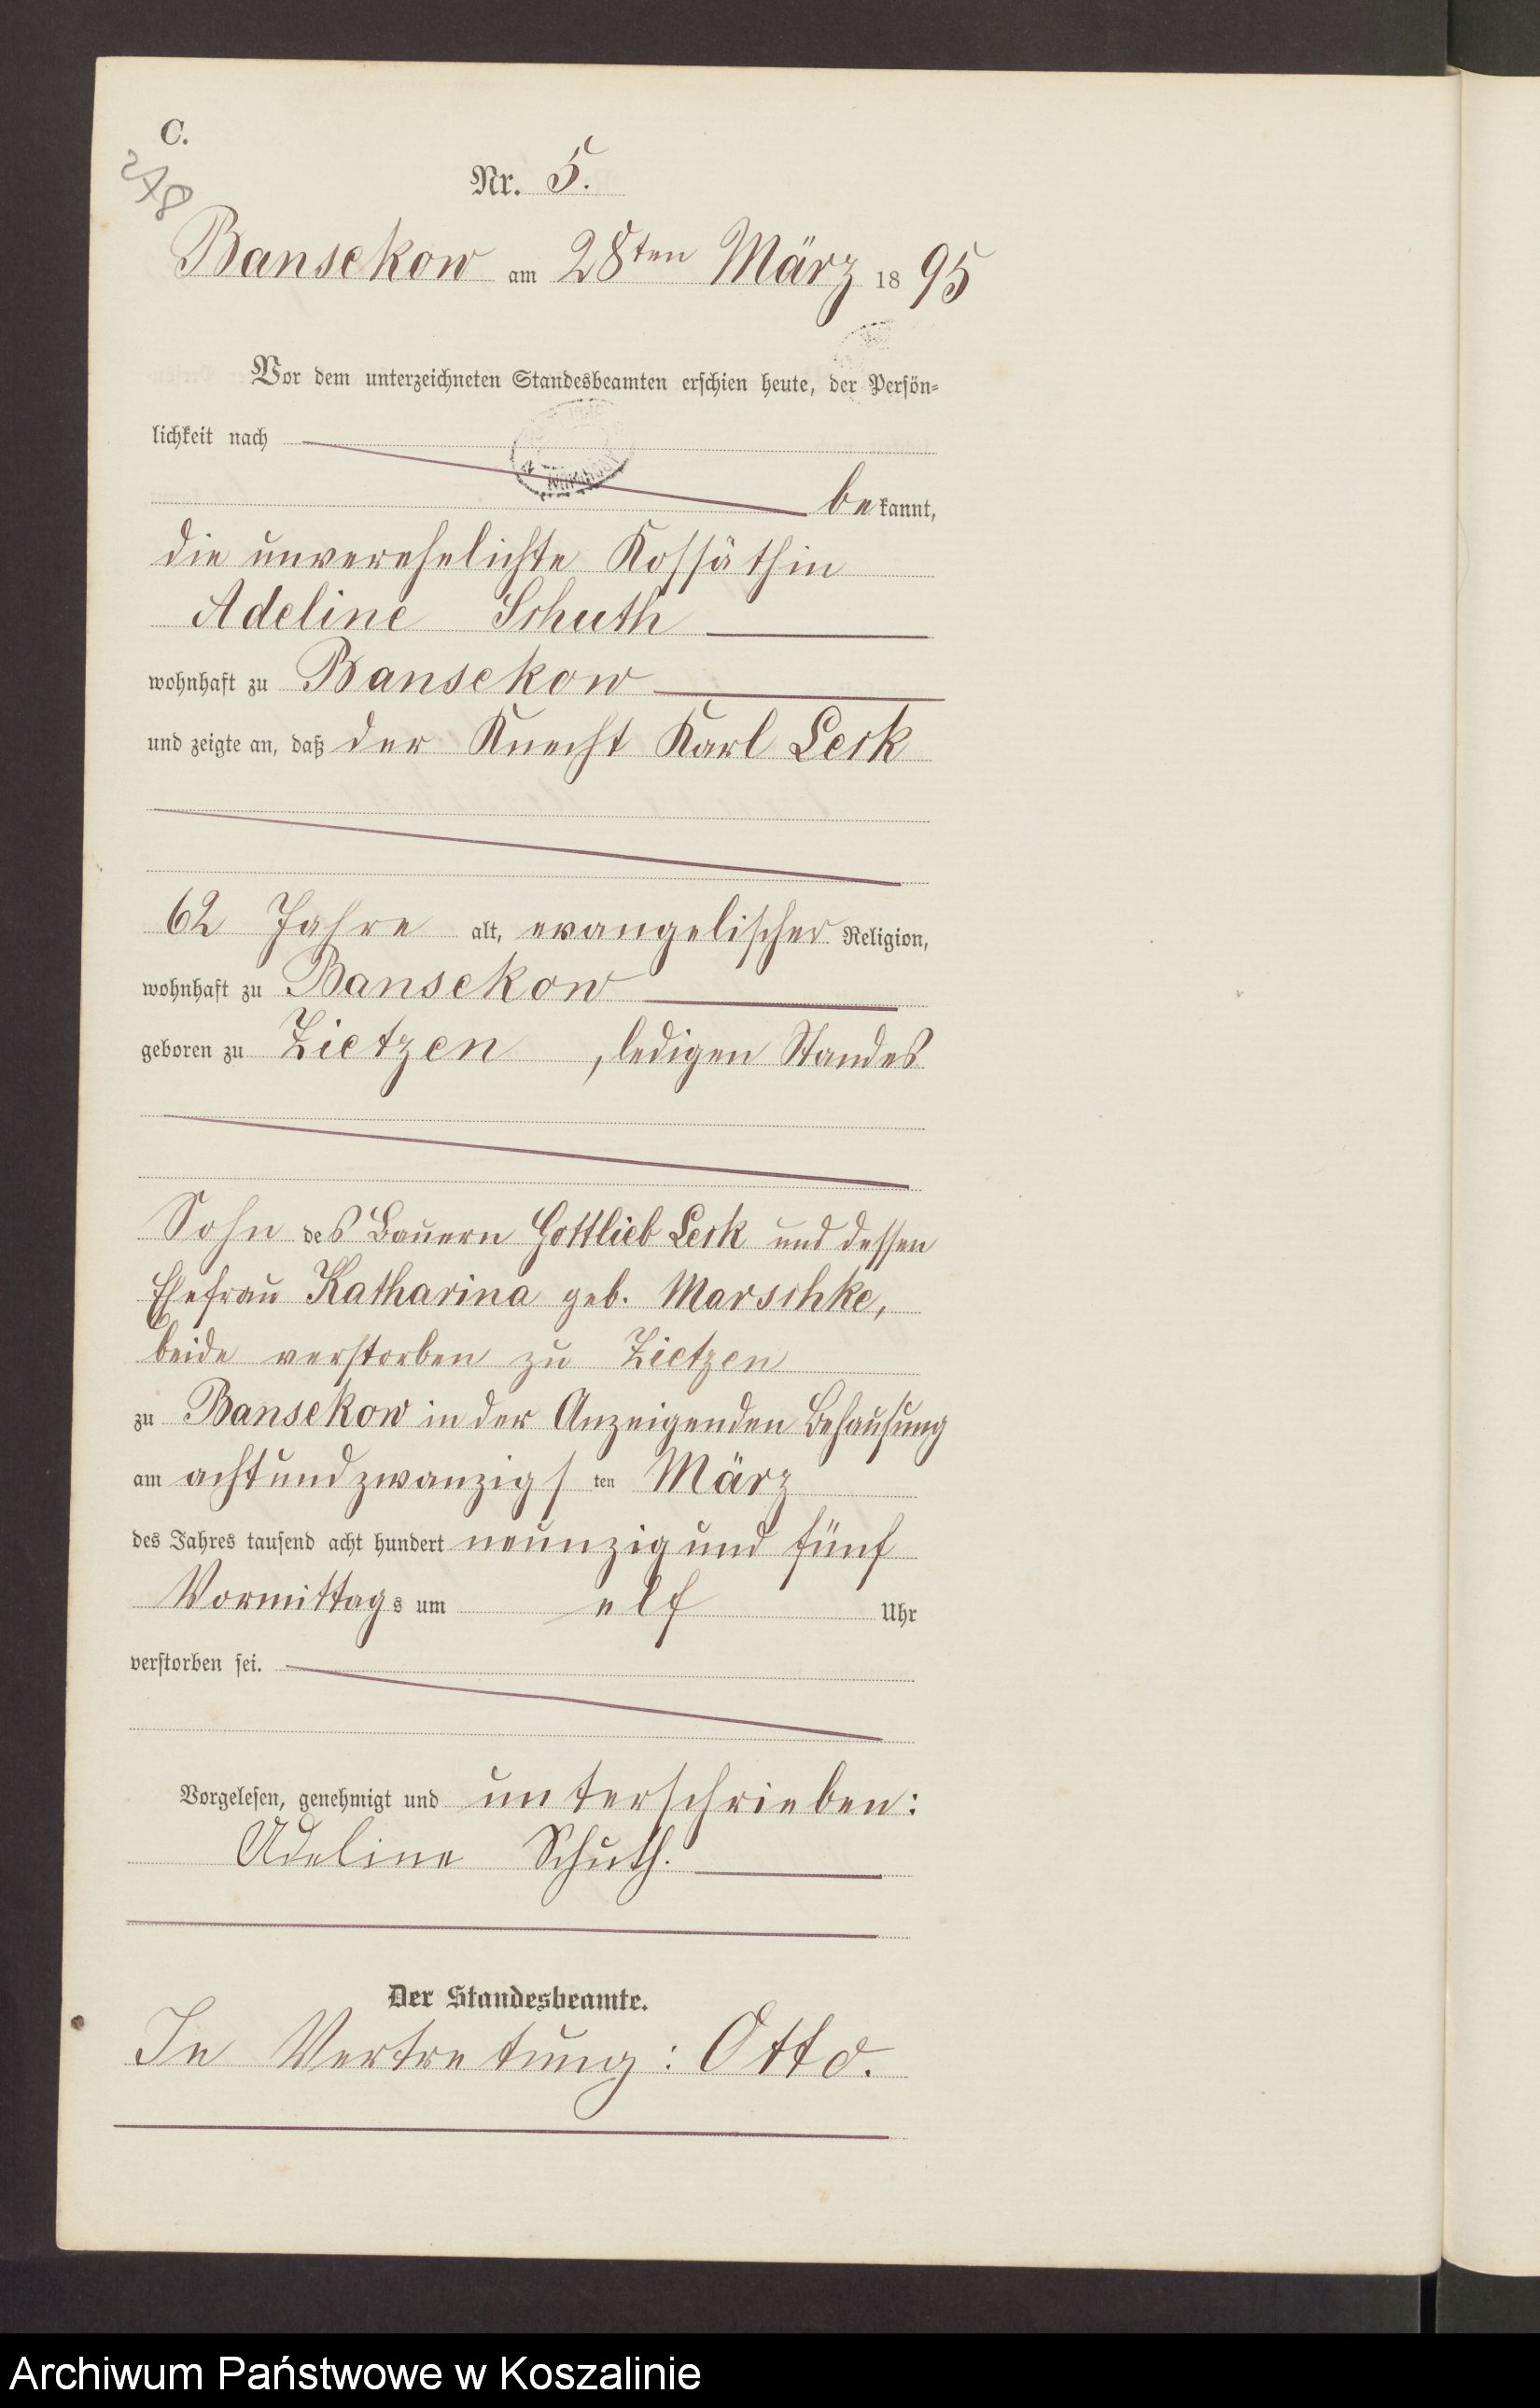 C.
278
Nr. 5.
Bansekow am 28ten März 1895
Vor dem unterzeichneten Standesbeamten erschien heute, der Persön-
lichkeit nach
bekannt,
die unverehelichte Kossäthin
Adeline Schuth
wohnhaft zu Bansekow
und zeigte an, daß der Knecht Karl Lesk
62 Jahre alt, evangelischer Religion,
wohnhaft zu Bansekow
geboren zu Zietzen, ledigen Standes
Sohn des Bauern Gottlieb Lesk und dessen
Ehefrau Katharina geb. Marschke,
beide verstorben zu Zietzen
zu Bansekow in der Anzeigenden Behausung
am achtundzwanzigsten März
des Jahres tausend acht hundert neunzig und fünf
Vormittags um elf Uhr
verstorben sei.
Vorgelesen, genehmigt und unterschrieben:
Adeline Schuth.
Der Standesbeamte.
In Vertretung: Otto.
Archiwum Państwowe w Koszalinie